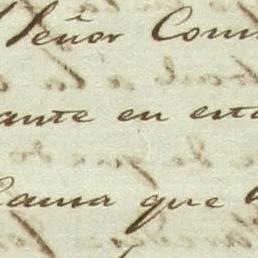 Señor Com
ante en est
Causa que